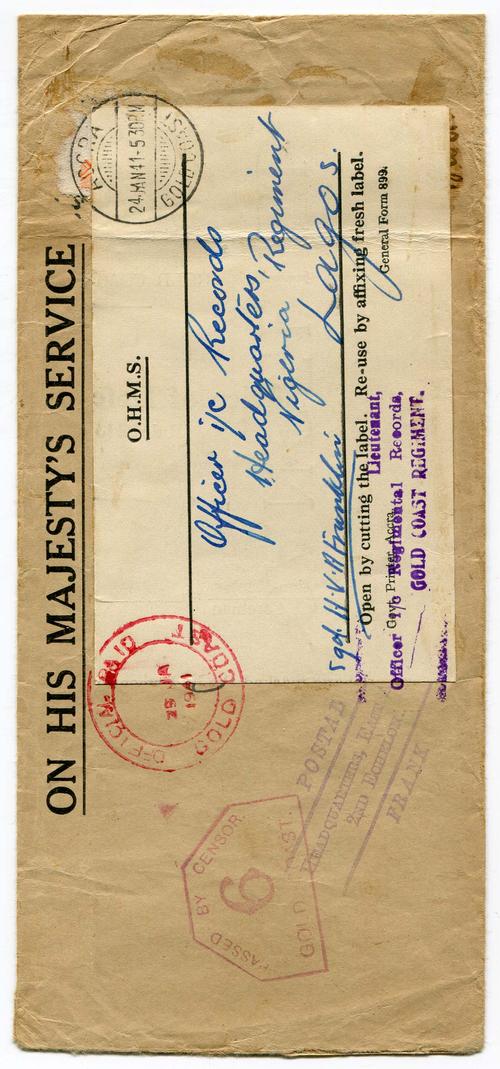 ON HIS MAJESTY'S SERVICE
ACCRA
24 JAN 41-5 30PM
GOLD COAST
O.H.M.S.
Officer i/c Records
Headquarters,
Nigeria Regiment
Lagos.
Sgd H.V.H Franklin
Open by cutting the label. Re-use by affixing fresh label.
Govt. Printer, Accra.
General Form 899.
Lieutenant,
Officer i/c Regimental Records,
GOLD COAST REGIMENT.
OFFICIAL PAID
25 JA
1941
GOLD COAST
POSTAL
HEADQUARTERS,
2ND ECHELON.
FRANK
PASSED BY CENSOR
6
GOLD COAST.